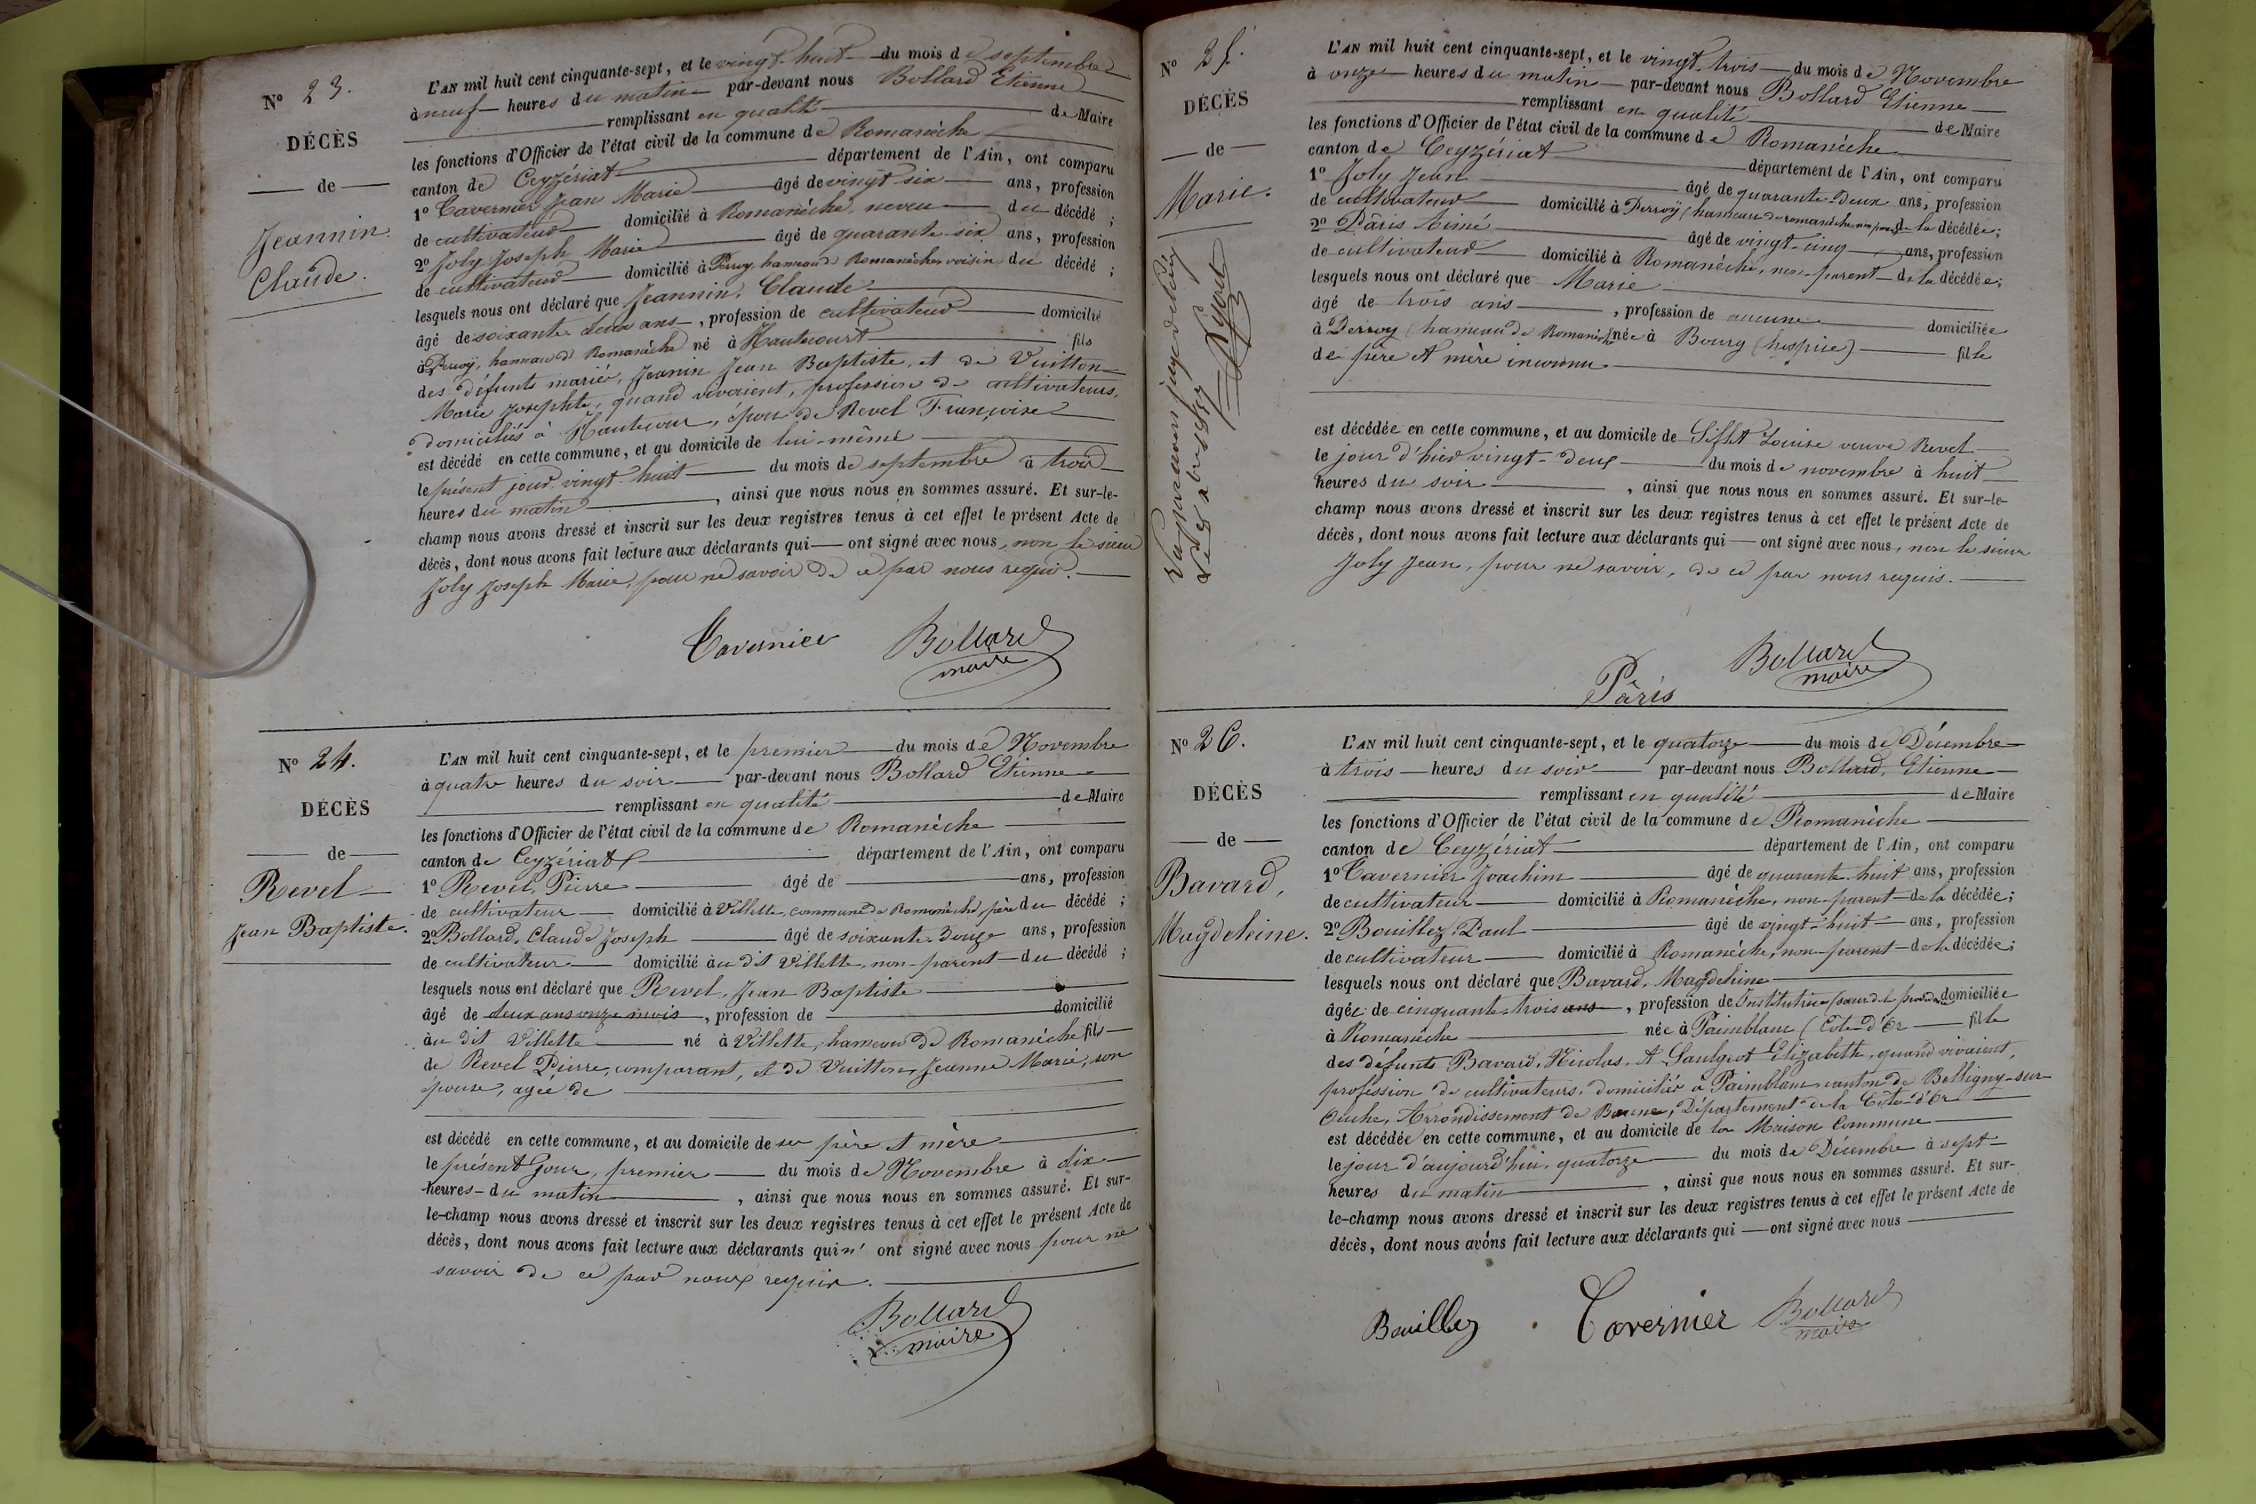 N° 23.
DÉCÈS
de
Jeannin
Claude.
L'AN mil huit cent cinquante-sept, et le vingt-huit du mois de septembre
à neuf heures du matin par-devant nous Bollard Etienne
remplissant en qualité de Maire
les fonctions d'Officier de l'état civil de la commune de Romanèche
canton de Ceyzériat département de l'Ain, ont comparu
1° Tavernier Jean Marie âgé de vingt-six ans, profession
de cultivateur domicilié à Romanèche, neveu du décédé ;
2° Joly Joseph Marie âgé de quarante-six ans, profession
de cultivateur domicilié à Perroy, hameau de Romanèche, voisin du décédé ;
lesquels nous ont déclaré que Jeannin, Claude
âgé de soixante deux ans, profession de cultivateur domicilié
à Perroy, hameau de Romanèche né à Hautecourt fils
des défunts mariés, Jeanin Jean Baptiste, et de Vuitton
Marie Josephte, quand vivaient, profession de cultivateurs,
domiciliés à Hautecour, époux de Revel Françoise
est décédé en cette commune, et au domicile de lui-même
le présent jour vingt-huit du mois de septembre à trois
heures du matin, ainsi que nous nous en sommes assuré. Et sur-le-
champ nous avons dressé et inscrit sur les deux registres tenus à cet effet le présent Acte de
décès, dont nous avons fait lecture aux déclarants qui ont signé avec nous, non le sieur
Joly Joseph Marie, pour ne savoir de ce par nous requis.
Tavernier Bollard
maire
N° 24.
DÉCÈS
de
Revel
Jean Baptiste.
L'AN mil huit cent cinquante-sept, et le premier du mois de Novembre
à quatre heures du soir par-devant nous Bollard Etienne
remplissant en qualité de Maire
les fonctions d'Officier de l'état civil de la commune de Romanèche
canton de Ceyzériat département de l'Ain, ont comparu
1° Revel, Pierre âgé de ans, profession
de cultivateur domicilié à Villette, commune de Romanèche, père du décédé ;
2° Bollard, Claude Joseph âgé de soixante-douze ans, profession
de cultivateur domicilié au dit Villette, non-parent du décédé ;
lesquels nous ont déclaré que Revel, Jean Baptiste
âgé de deux ans onze mois, profession de domicilié
au dit Villette né à Villette, hameau de Romanèche fils
de Revel Pierre, comparant, et de Vuitton, Jeanne Marie, son
épouse, agée de
est décédé en cette commune, et au domicile de ses père et mère
le présent jour, premier du mois de Novembre à dix
heures du matin, ainsi que nous nous en sommes assuré. Et sur-
le-champ nous avons dressé et inscrit sur les deux registres tenus à cet effet le présent Acte de
décès, dont nous avons fait lecture aux déclarants qui n' ont signé avec nous pour ne
savoir de ce par nous requis.
Bollard
maire
N° 25.
DÉCÈS
de
Marie.
L'AN mil huit cent cinquante-sept, et le vingt-trois du mois de Novembre
à onze heures du matin par-devant nous Bollard Etienne
remplissant en qualité de Maire
les fonctions d'Officier de l'état civil de la commune de Romanèche
canton de Ceyzériat département de l'Ain, ont comparu
1° Joly Jean âgé de quarante-deux ans, profession
de cultivateur domicilié à Perroy (hameau de Romanèche non parent de la décédée ;
2° Pâris Aimé âgé de vingt-cinq ans, profession
de cultivateur domicilié à Romanèche, non-parent de la décédée ;
lesquels nous ont déclaré que Marie
âgé de trois ans, profession de aucune domiciliée
à Perroy (hameau de Romanèche née à Bourg (hospice) fille
de père et mère inconnu
est décédée en cette commune, et au domicile de Louise veuve Revel
le jour d'hier vingt-deux du mois de novembre à huit
heures du soir, ainsi que nous nous en sommes assuré. Et sur-le-
champ nous avons dressé et inscrit sur les deux registres tenus à cet effet le présent Acte de
décès, dont nous avons fait lecture aux déclarants qui ont signé avec nous, non le sieur
Joly Jean, pour ne savoir, de ce par nous requis.
Pâris Bollard
maire
N° 26.
DÉCÈS
de
Bavard,
Magdeleine.
L'AN mil huit cent cinquante-sept, et le quatorze du mois de Décembre
à trois heures du soir par-devant nous Bollard, Etienne
remplissant en qualité de Maire
les fonctions d'Officier de l'état civil de la commune de Romanèche
canton de Ceyzériat département de l'Ain, ont comparu
1° Tavernier Joachim âgé de quarante-huit ans, profession
de cultivateur domicilié à Romanèche, non-parent de la décédée ;
2° Bouillez Paul âgé de vingt-huit ans, profession
de cultivateur domicilié à Romanèche, non-parent de la décédée ;
lesquels nous ont déclaré que Bavard, Magdeleine
âgée de cinquante-trois ans, profession de Institutrice domiciliée
à Romanèche née à Paimblanc (Côte-d'Or fille
des défunts Bavard, Nicolas, et Saulgeot Elizabeth, quand vivaient,
profession de cultivateurs, domiciliés à Paimblanc canton de Belligny-sur-
Ouche, Arrondissement de Beaune, Département de la Côte-d'Or
est décédée en cette commune, et au domicile de la Maison Commune
le jour d'aujourd'hui quatorze du mois de Décembre à sept
heures du matin, ainsi que nous nous en sommes assuré. Et sur-
le-champ nous avons dressé et inscrit sur les deux registres tenus à cet effet le présent Acte de
décès, dont nous avons fait lecture aux déclarants qui ont signé avec nous
Bouillez Tavernier Bollard
maire